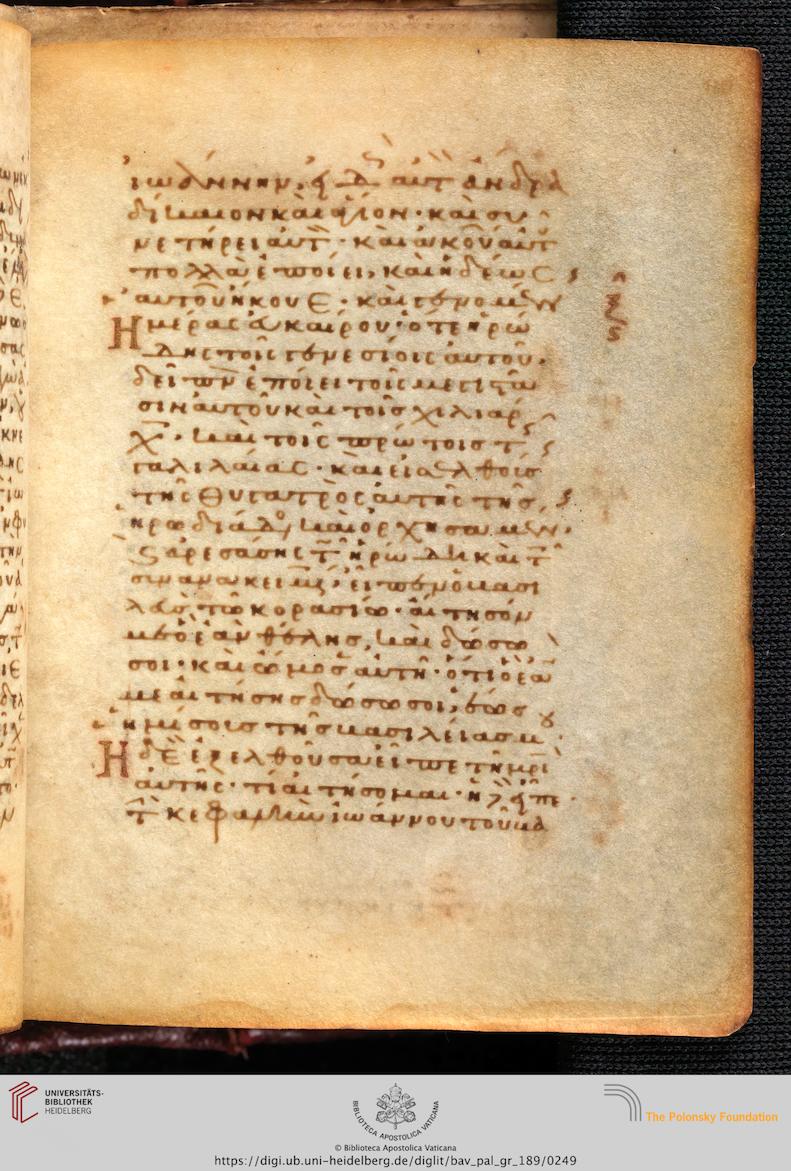 ἰωάννην, εἰδὼς αὐτ ἄνδρα
δίκαιον καὶ ἅγιον· καὶ συ
νετήρει αὐτ· καὶ ἀκού αὐτ
πολλὰ ἐποίει, καὶ ἡδέως
αὐτοῦ ἤκουε· καὶ γενομένης
Ἡμέρας εὐκαίρου· ὅτε ἡρώ
δης τοῖς γενεσίοις αὐτοῦ,
δεῖπνον ἐποίει τοῖς μεγιστᾶ
σιν αὐτοῦ καὶ τοῖς χιλιάρ
χοις· καὶ τοῖς πρώτοις τῆς
γαλιλαίας· καὶ εἰσελθούσης
τῆς θυγατρὸς αὐτῆς τῆς
ἡρωδιάδος, καὶ ὀρχησαμένης,
καὶ ἀρεσάσης τῷ ἡρώδη καὶ τοῖς
συνανακειμένοις, εἶπεν ὁ βασι
λεὺς τῷ κορασίω· αἴτησόν
με ὃ ἐὰν θέλης, καὶ δώσω
σοι· καὶ ὤμοσεν αὐτῆ· ὅτι ὃ ἐάν
με αἰτήσης δώσω σοι, ἕως
ἡμίσους τῆς βασιλείας μου·
Ἡ δὲ ἐξελθοῦσα εἶπε τῆ μρὶ
αὐτῆς· τί αἰτήσομαι· ἡ δὲ εἶπε·
τὴν κεφαλὴν ἰωάννου τοῦ βα
UNIVERSITÄTS-
BIBLIOTHEK
HEIDELBERG
BIBLIOTECA APOSTOLICA VATICANA
The Polonsky Foundation
© Biblioteca Apostolica Vaticana
https://digi.ub.uni-heidelberg.de/diglit/bav_pal_gr_189/0249